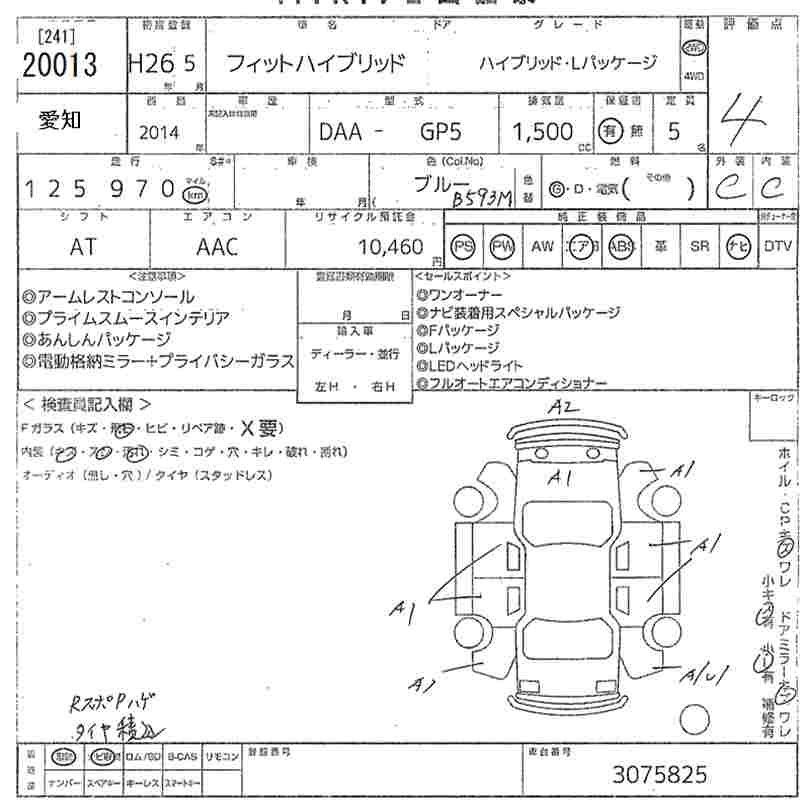 [241]
20013
初度登録
H26 5
年 月
車名
フィットハイブリッド
ドア
グレード
ハイブリッド・Lパッケージ
4WD
評価点
4
愛知
2014
年
車歴
型式
DAA - GP5
排気量
1,500
CC
保証書
有
定員
5
名
走行
125970
マイル
km
車検
年 月
色(Col.No)
ブルー
B593M
色替
燃料
G・D・電気( その他 )
外装
C
内装
C
シフト
AT
エアコン
AAC
リサイクル預託金
10,460
円
純正装備品
PS PW AW エアB ABS 革 SR ナビ DTV
<注意事項>
◎アームレストコンソール
◎プライムスムースインテリア
◎あんしんパッケージ
◎電動格納ミラー+プライバシーガラス
月 日
輸入車
ディーラー・並行
左H ・ 右H
<セールスポイント>
◎ワンオーナー
◎ナビ装着用スペシャルパッケージ
◎Fパッケージ
◎Lパッケージ
◎LEDヘッドライト
◎フルオートエアコンディショナー
キーロック
<検査員記入欄>
Fガラス(キズ・飛石・ヒビ・リペア跡・X要)
内装(キズ・スレ・汚れ・シミ・コゲ・穴・キレ・破れ・割れ)
オーディオ(無し・穴)/タイヤ(スタッドレス)
A2
A1
A1
A1
A1
A1
A/U1
RスポPハゲ
タイヤ積込
ホイル・CPキズワレ
ドアミラーキズワレ
小キズ有
補修有
ロム/SD B-CAS リモコン
ナンバー スペアキー キーレス スマートキー
登録番号
車台番号
3075825